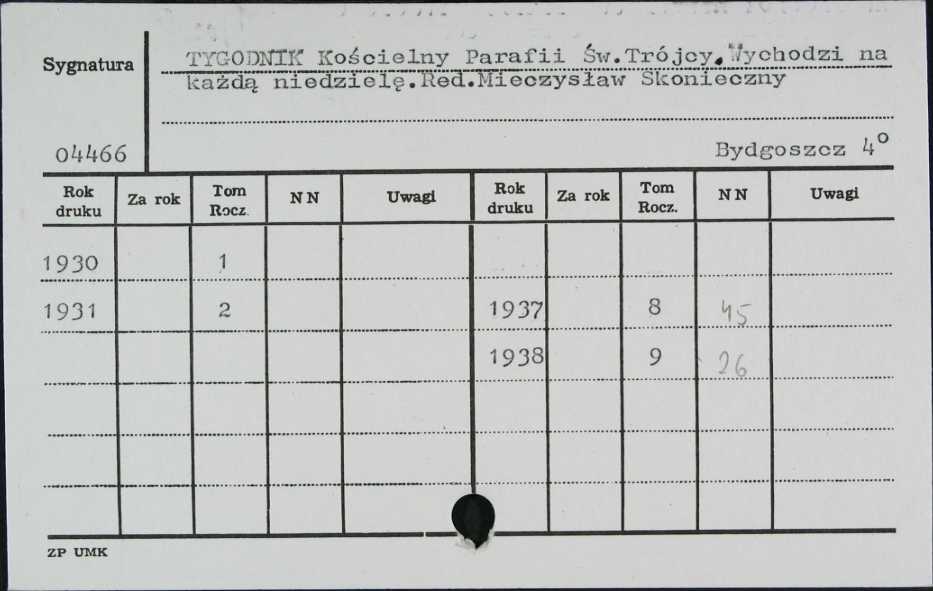 Sygnatura
TYGODNIK Kościelny Parafii Św.Trójcy.Wychodzi na
każdą niedzielę.Red.Mieczysław Skonieczny
04466
Bydgoszcz 4º
Rok druku Za rok Tom Rocz. NN Uwagi Rok druku Za rok Tom Rocz. NN Uwagi
1930 1
1931 2 1937 8 45
1938 9 26
ZP UMK